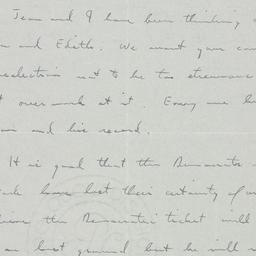 Jean and I have been thinking
and Ethel. We want your
reelection not to be too strenuous
over work at it. Every one
and his record.
It is good that the Democrats
have lost their certainty of
the Democratic ticket will
lost ground but he will